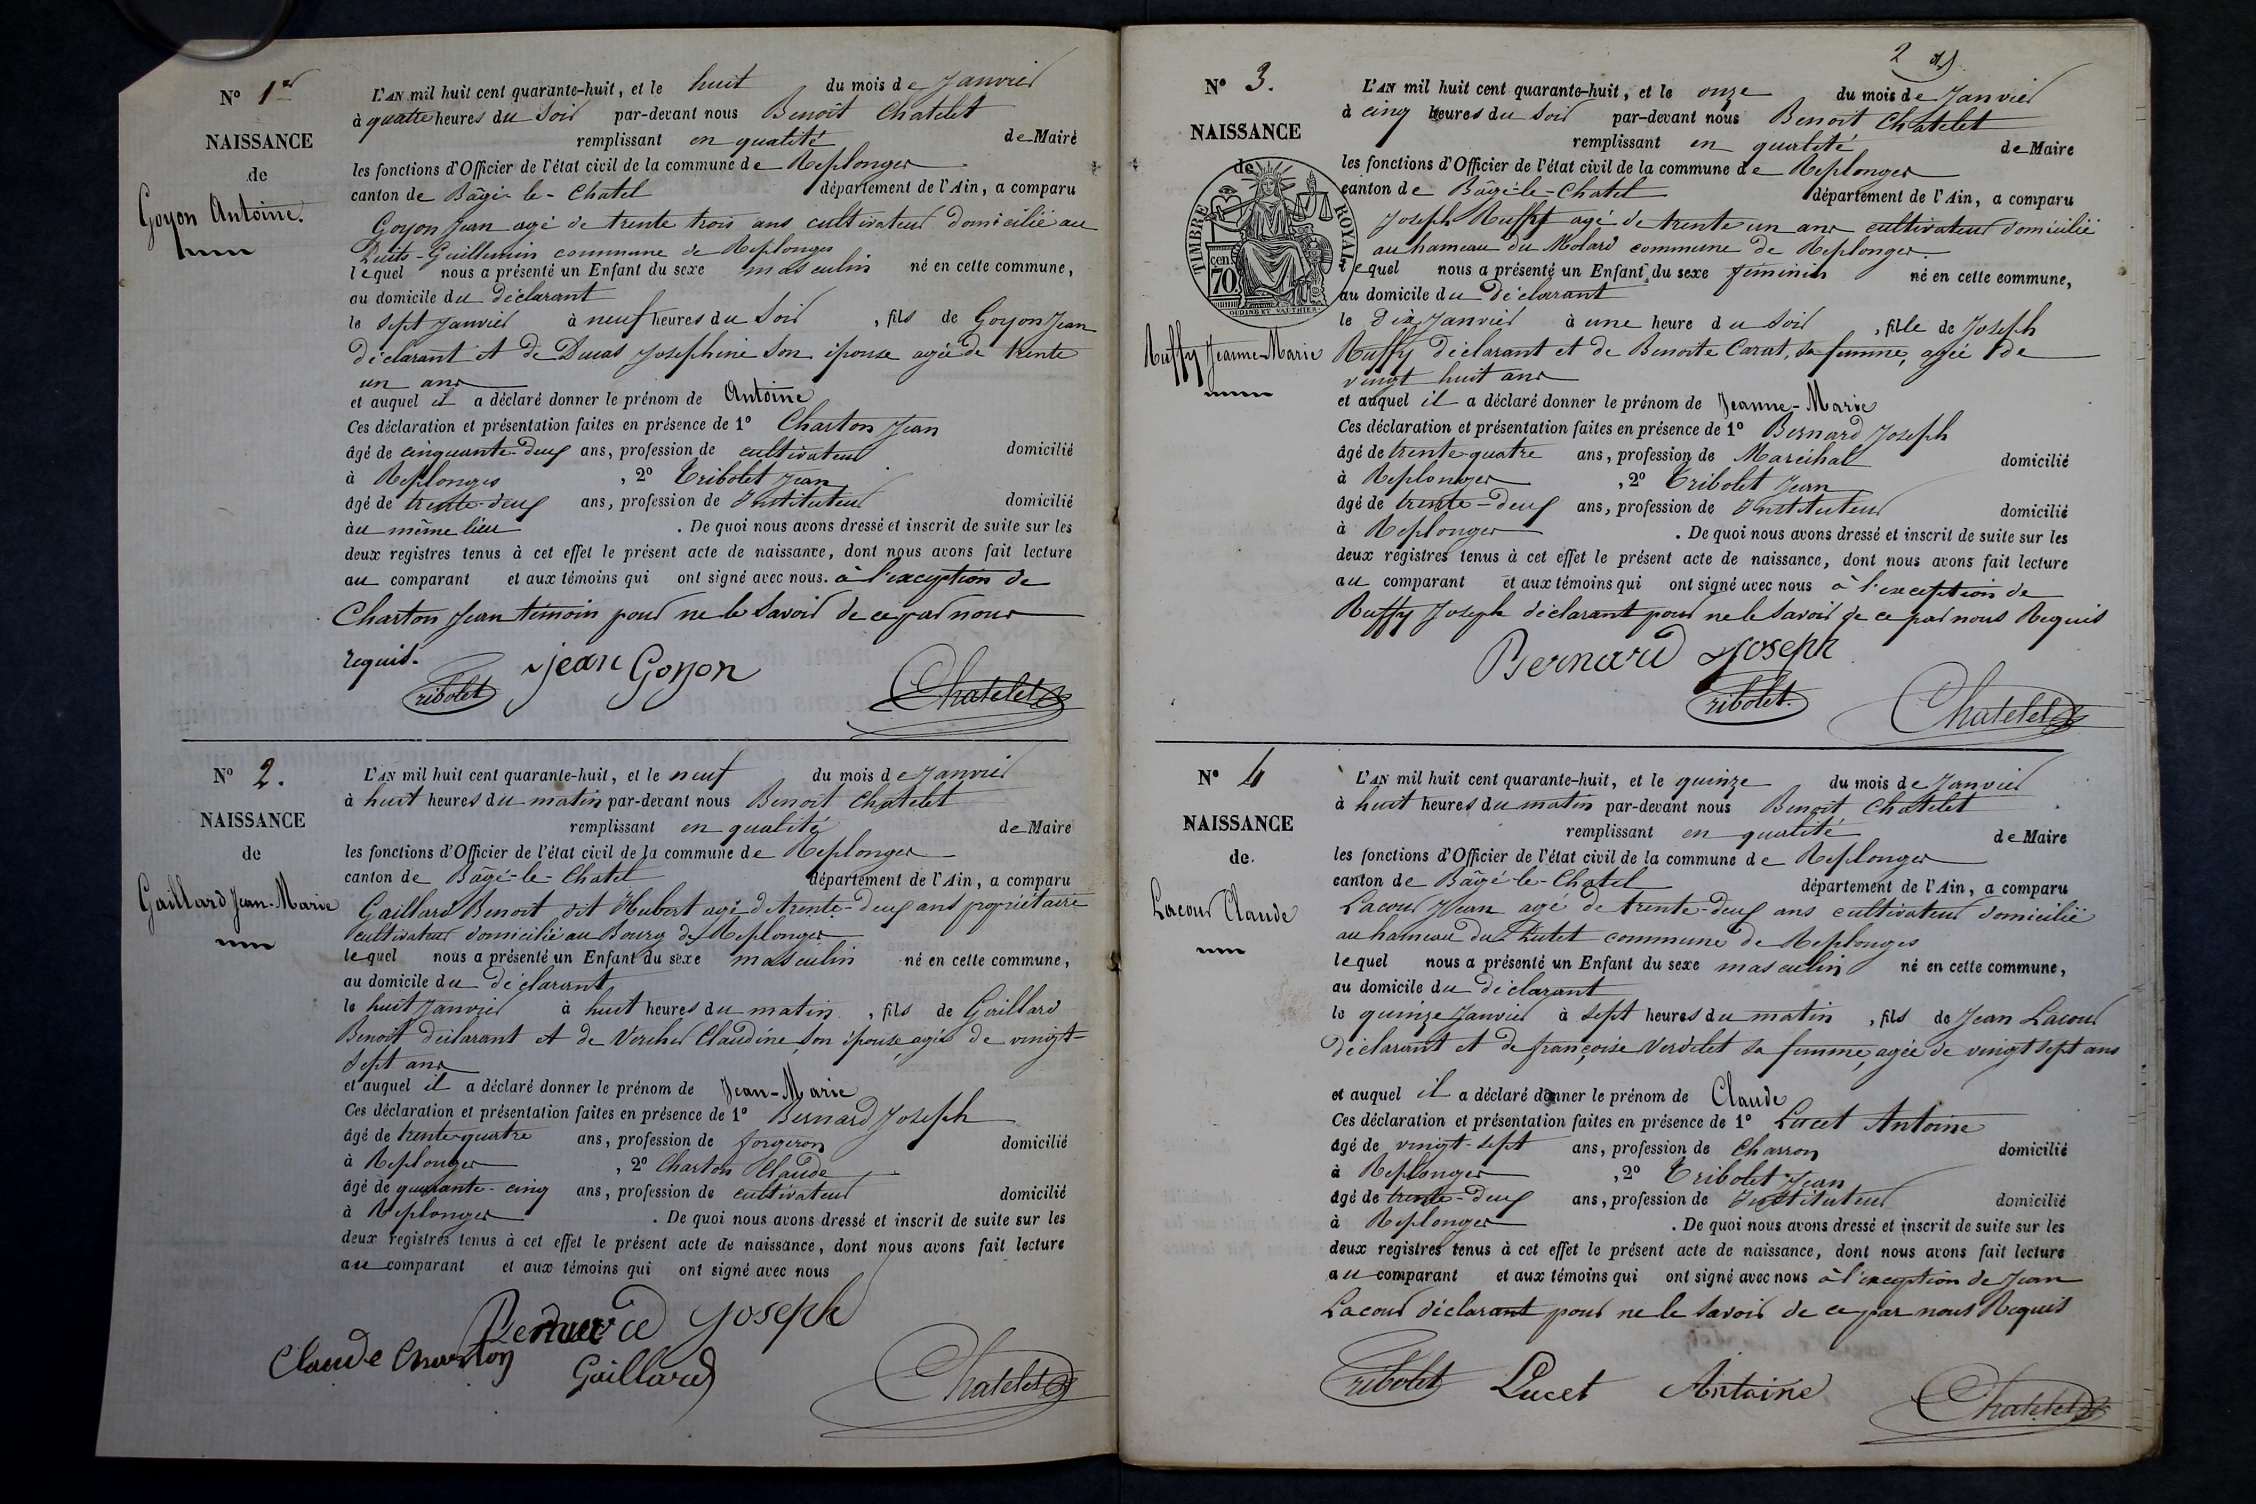 N° 1er
NAISSANCE
de
Goyon Antoine.
L'AN mil huit cent quarante-huit, et le huit du mois de Janvier
à quatre heures du Soir par-devant nous Benoît Chatelet
remplissant en qualité de Maire
les fonctions d'Officier de l'état civil de la commune de Replonges
canton de Bâgé-le-Chatel département de l'Ain, a comparu
Goyon Jean agé de trente trois ans cultivateur domicilié au
Puits-Guillemin commune de Replonges
lequel nous a présenté un Enfant du sexe masculin né en cette commune,
au domicile du déclarant
le sept Janvier à neuf heures du Soir, fils de Goyon Jean
déclarant et de Ducas Josephine son épouse agée de trente
un ans
et auquel il a déclaré donner le prénom de Antoine
Ces déclaration et présentation faites en présence de 1° Charton Jean
âgé de cinquante-deux ans, profession de cultivateur domicilié
à Replonges, 2° Tribolet Jean
âgé de trente-deux ans, profession de Instituteur domicilié
au même lieu. De quoi nous avons dressé et inscrit de suite sur les
deux registres tenus à cet effet le présent acte de naissance, dont nous avons fait lecture
au comparant et aux témoins qui ont signé avec nous. à l'exception de
Charton Jean témoin pour ne le Savoir de ce par nous
requis.
Jean Goyon
Tribolet
Chatelet
N° 2.
NAISSANCE
de
Gaillard Jean-Marie
L'AN mil huit cent quarante-huit, et le neuf du mois de Janvier
à huit heures du matin par-devant nous Benoît Chatelet
remplissant en qualité de Maire
les fonctions d'Officier de l'état civil de la commune de Replonges
canton de Bâgé-le-Chatel département de l'Ain, a comparu
Gaillard Benoit dit Hubert agé de trente-deux ans propriétaire
cultivateur domicilié au Bourg de Replonges
lequel nous a présenté un Enfant du sexe masculin né en cette commune,
au domicile du déclarant
le huit Janvier à huit heures du matin, fils de Gaillard
Benoît déclarant et de Vercher Claudine son épouse, agée de vingt-
sept ans
et auquel il a déclaré donner le prénom de Jean-Marie
Ces déclaration et présentation faites en présence de 1° Bernard Joseph
âgé de trente-quatre ans, profession de forgeron domicilié
à Replonges, 2° Charton Claude
âgé de quarante-cinq ans, profession de cultivateur domicilié
à Replonges. De quoi nous avons dressé et inscrit de suite sur les
deux registres tenus à cet effet le présent acte de naissance, dont nous avons fait lecture
au comparant et aux témoins qui ont signé avec nous
Bernard Joseph
Claude Charton
Gaillard
Chatelet
2
N° 3.
NAISSANCE
de
TIMBRE ROYAL
70 cen
OUDINE ET VAUTHIER
Ruffy Jeanne-Marie
L'AN mil huit cent quarante-huit, et le onze du mois de Janvier
à cinq heures du Soir par-devant nous Benoît Chatelet
remplissant en qualité de Maire
les fonctions d'Officier de l'état civil de la commune de Replonges
canton de Bâgé-le-Chatel département de l'Ain, a comparu
Joseph Ruffy agé de trente un ans cultivateur domicilié
au hameau du Molard commune de Replonges.
lequel nous a présenté un Enfant du sexe féminin né en cette commune,
au domicile du Déclarant
le Dix Janvier à une heure du Soir, fille de Joseph
Ruffy déclarant et de Benoite Carat, sa femme, agée de
vingt huit ans
et auquel il a déclaré donner le prénom de Jeanne-Marie
Ces déclaration et présentation faites en présence de 1° Bernard Joseph
âgé de trente-quatre ans, profession de Maréchal domicilié
à Replonges, 2° Tribolet Jean
âgé de trente-deux ans, profession de Instituteur domicilié
à Replonges. De quoi nous avons dressé et inscrit de suite sur les
deux registres tenus à cet effet le présent acte de naissance, dont nous avons fait lecture
au comparant et aux témoins qui ont signé avec nous à l'exception de
Ruffy Joseph déclarant pour ne le Savoir de ce par nous Requis
Bernard Joseph
Tribolet.
Chatelet
N° 4
NAISSANCE
de.
Lacour Claude
L'AN mil huit cent quarante-huit, et le quinze du mois de Janvier
à huit heures du matin par-devant nous Benoît Chatelet
remplissant en qualité de Maire
les fonctions d'Officier de l'état civil de la commune de Replonges
canton de Bâgé-le-Chatel département de l'Ain, a comparu
Lacour Jean agé de trente-deux ans cultivateur domicilié
au hameau du commune de Replonges
lequel nous a présenté un Enfant du sexe masculin né en cette commune,
au domicile du déclarant
le quinze Janvier à sept heures du matin, fils de Jean Lacour
déclarant et de françoise Verdelet sa femme, agée de vingt sept ans
et auquel il a déclaré donner le prénom de Claude
Ces déclaration et présentation faites en présence de 1° Lucet Antoine
âgé de vingt-sept ans, profession de Charron domicilié
à Replonges, 2° Tribolet Jean
âgé de trente-deux ans, profession de Instituteur domicilié
à Replonges. De quoi nous avons dressé et inscrit de suite sur les
deux registres tenus à cet effet le présent acte de naissance, dont nous avons fait lecture
au comparant et aux témoins qui ont signé avec nous à l'exception de Jean
Lacour déclarant pour ne le Savoir de ce par nous Requis
Tribolet Lucet Antoine
Chatelet